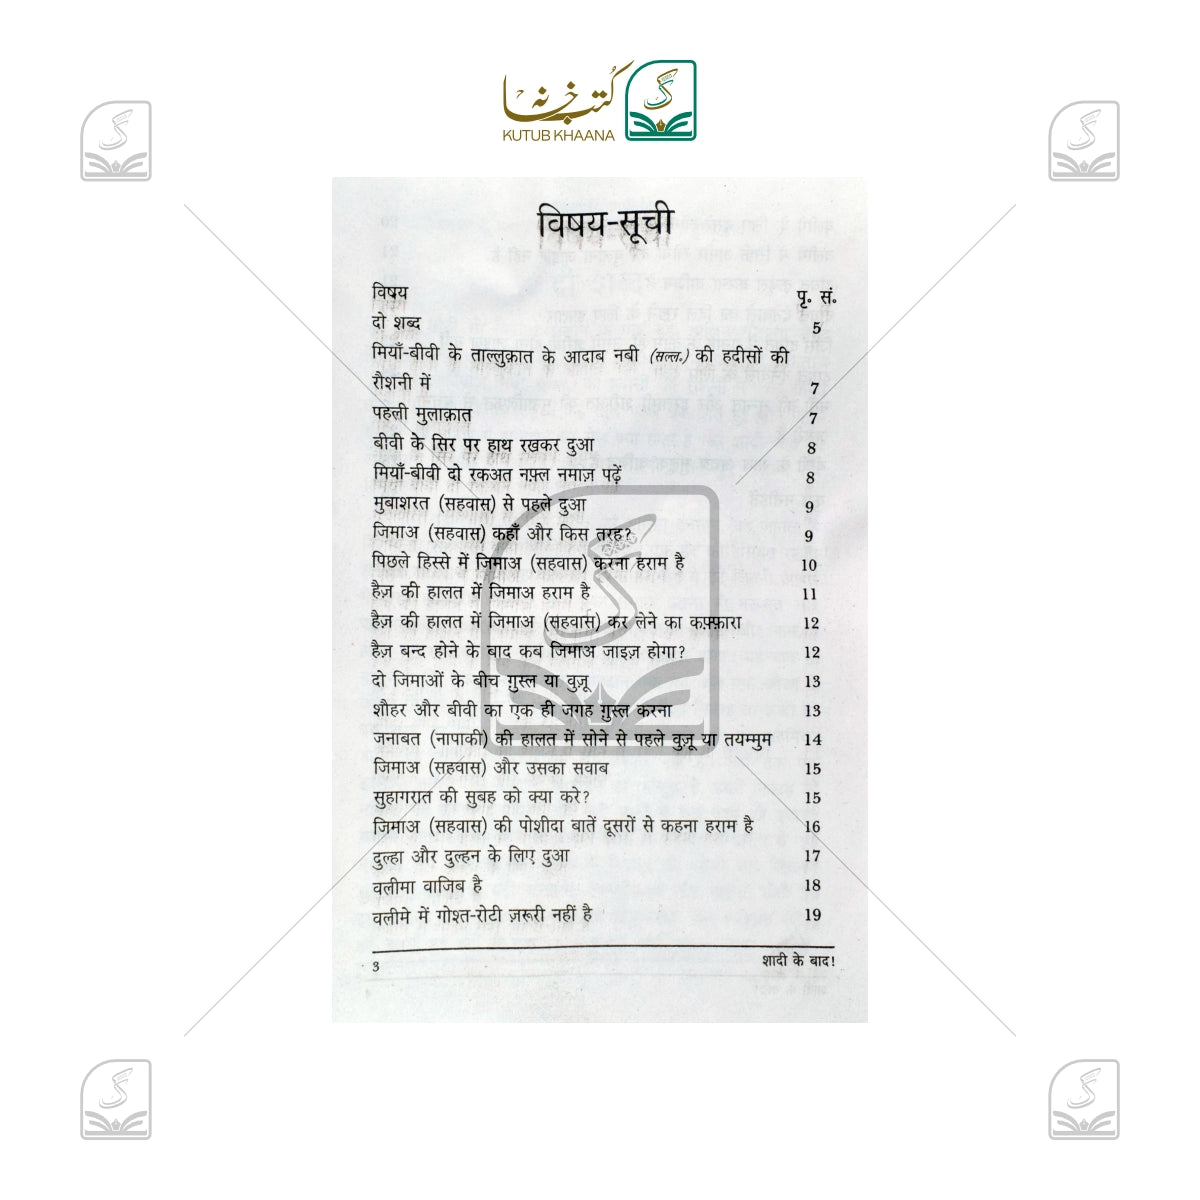 کتب خانہ
KUTUB KHAANA
विषय-सूची
विषय पृ. सं.
दो शब्द 5
मियाँ-बीवी के ताल्लुक़ात के आदाब नबी (सल्ल.) की हदीसों की
रौशनी में 7
पहली मुलाक़ात 7
बीवी के सिर पर हाथ रखकर दुआ 8
मियाँ-बीवी दो रकअत नफ़्ल नमाज़ पढ़ें 8
मुबाशरत (सहवास) से पहले दुआ 9
जिमाअ (सहवास) कहाँ और किस तरह? 9
पिछले हिस्से में जिमाअ (सहवास) करना हराम है 10
हैज़ की हालत में जिमाअ हराम है 11
हैज़ की हालत में जिमाअ (सहवास) कर लेने का कफ़्फ़ारा 12
हैज़ बन्द होने के बाद कब जिमाअ जाइज़ होगा? 12
दो जिमाओं के बीच ग़ुस्ल या वुज़ू 13
शौहर और बीवी का एक ही जगह ग़ुस्ल करना 13
जनाबत (नापाकी) की हालत में सोने से पहले वुज़ू या तयम्मुम 14
जिमाअ (सहवास) और उसका सवाब 15
सुहागरात की सुबह को क्या करे? 15
जिमाअ (सहवास) की पोशीदा बातें दूसरों से कहना हराम है 16
दुल्हा और दुल्हन के लिए दुआ 17
वलीमा वाजिब है 18
वलीमे में गोश्त-रोटी ज़रूरी नहीं है 19
3 शादी के बाद!